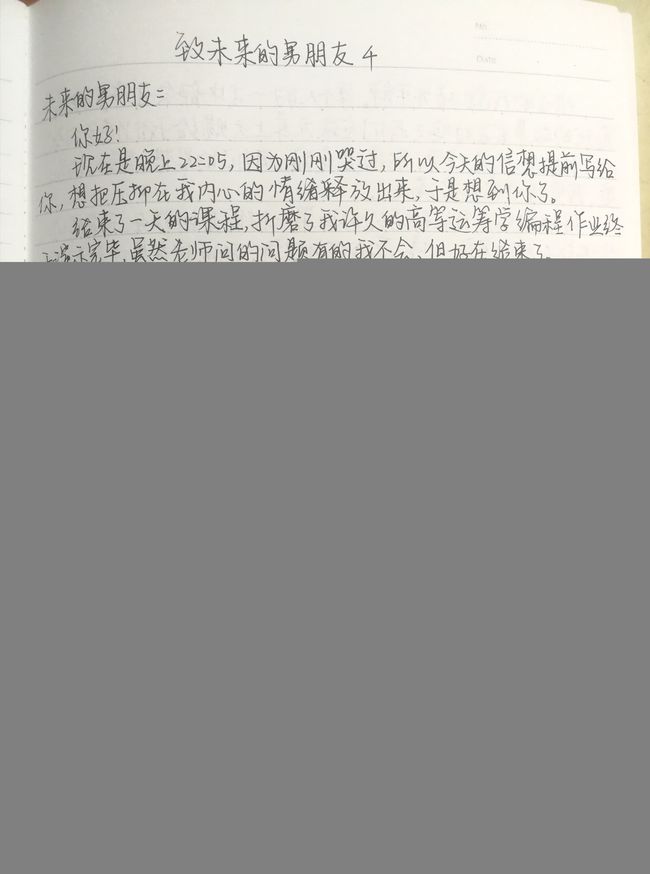 No.
Date
致未来的男朋友 4
未来的男朋友:
你好!
现在是晚上22:05,因为刚刚哭过,所以今天的信想提前写给
你,想把压抑在我内心的情绪释放出来,于是想到你了。
结束了一天的课程,折磨了我许久的高等运筹学编程作业终
演示完毕,虽然老师问的问题有的我不会,但好在结束了